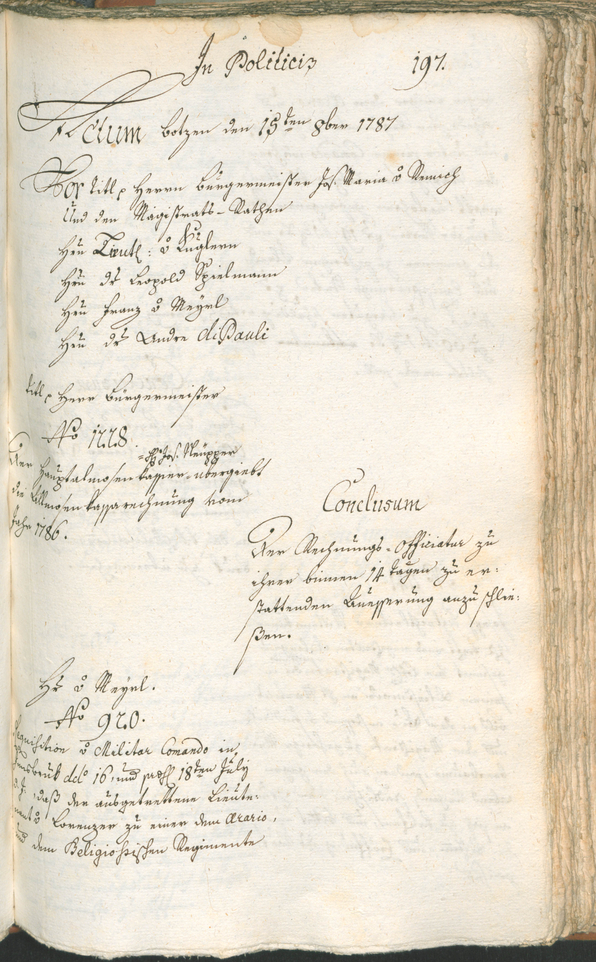 In Politicis 197.
Actum Botzen den 15ten 8ber 1787
Vor titl. Herrn Bürgermeister Jos. Maria v Remich
Und den Magistrats-Räthen
Hrn Lieutl: v Kuglern
Hrn dr Leopold Spielmann
Hrn Franz v Meyrl
Hrn dr Andre di Pauli
titl. Herr Burgermeister
No 1228.
Jos. Neupper
Der Hauptalmosenkassier übergiebt
die Allmosenkassarechnung vom
Jahr 1786.
Conclusum
Der Rechnungs-Officiatur zu
ihrer binnen 14 tagen zu er-
stattenden Äuesserung anzuschlie-
ßen.
Hr v Meyrl.
No 920.
Requisition v Militar Comando in
Innsbruk ddo 16 und 18ten July
d. J., daß der ausgetrettene Lieute-
nant v Lorenzer zu einer dem Arario,
und dem Regimente